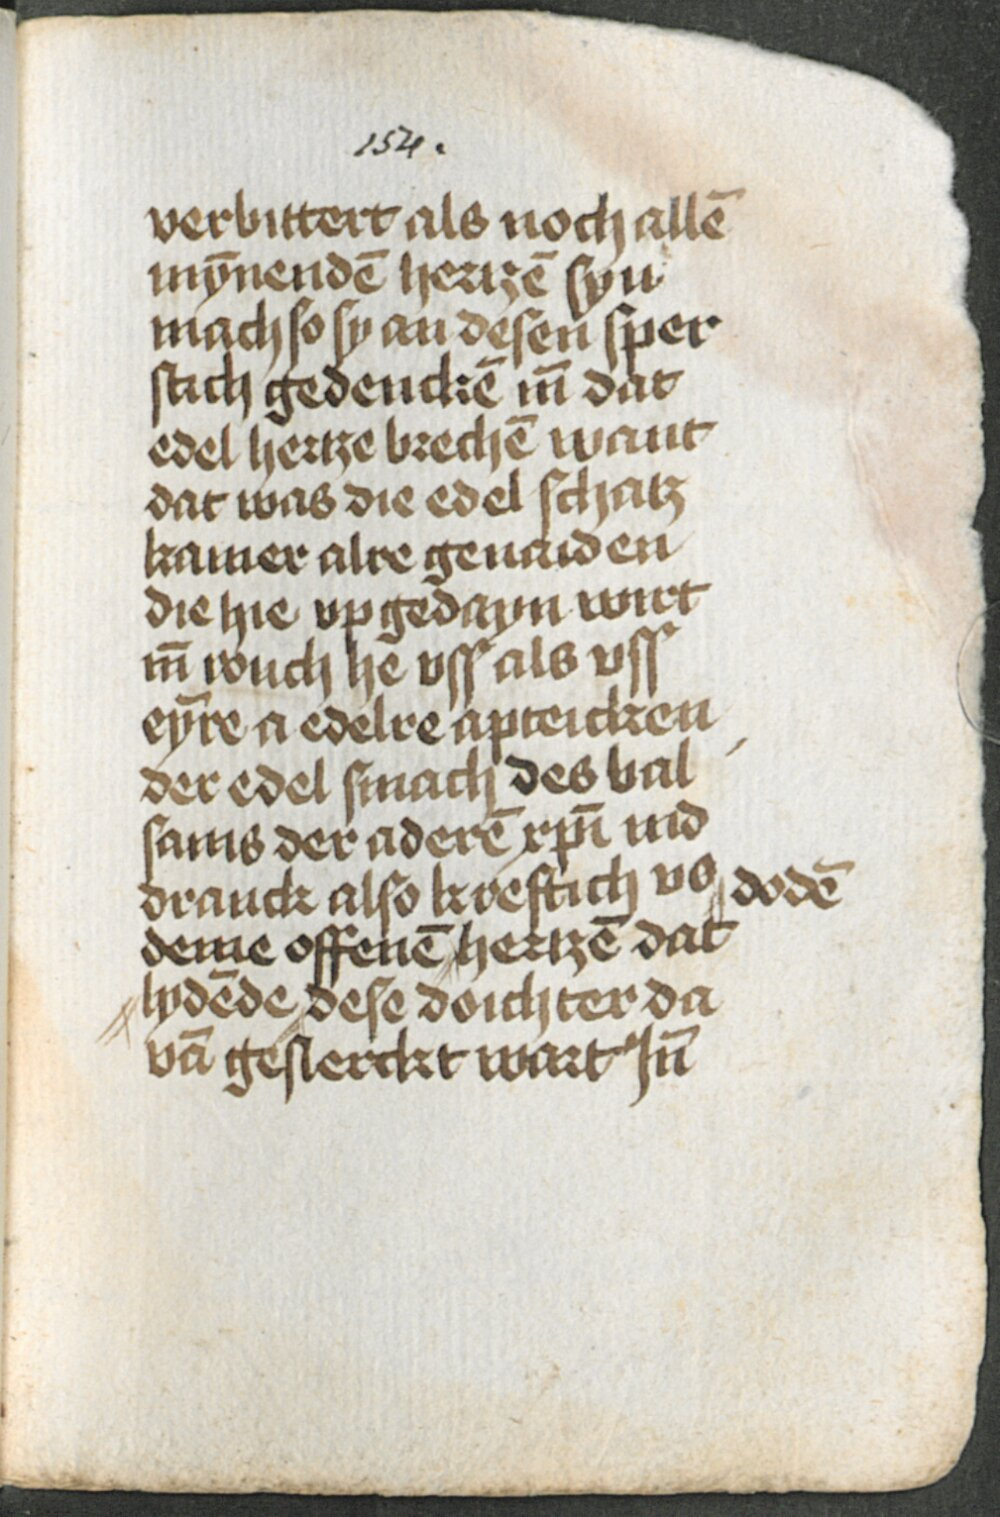 154.
verbittert als noch allē
mȳnendē hertzē syn
mach so sy an desen sper
stich gedenckē īn dat
edel hertze brechē want
dat was die edel schatz
kamer alre genaiden
die hie vp gedayn wirt
īn wuch he vss als vss
eȳre a edelre apteicken
der edel smach des bal
sams der aderē xpī ind
dranck also kreftich vs dodē
deme offenē hertzē dat
lydēde dese doichter da
vā gesterckt wart Īn